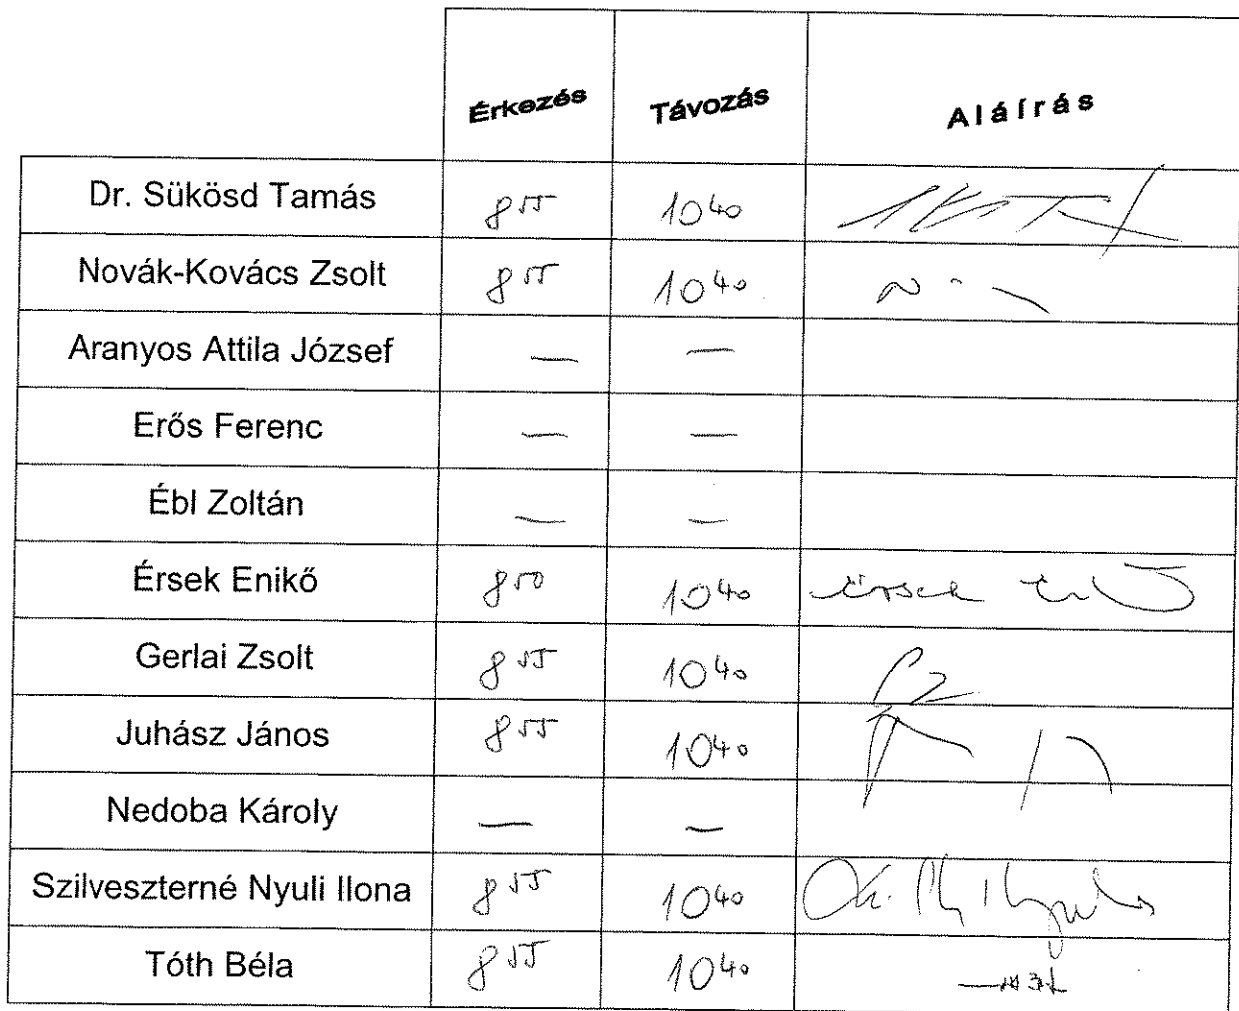 Érkezés Távozás Aláírás
Dr. Sükösd Tamás 8⁵⁵ 10⁴⁰
Novák-Kovács Zsolt 8⁵⁵ 10⁴⁰
Aranyos Attila József — —
Erős Ferenc — —
Ébl Zoltán — —
Érsek Enikő 8⁵⁰ 10⁴⁰ Érsek Enikő
Gerlai Zsolt 8⁵⁵ 10⁴⁰
Juhász János 8⁵⁵ 10⁴⁰
Nedoba Károly — —
Szilveszterné Nyuli Ilona 8⁵⁵ 10⁴⁰
Tóth Béla 8⁵⁵ 10⁴⁰